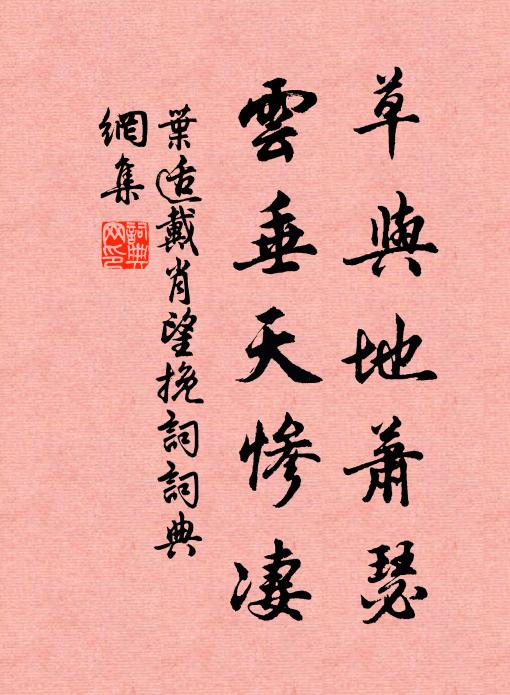 草與地蕭瑟
雲垂天慘淒
葉适戴肖望挽詞詞典
網集
詞典網印